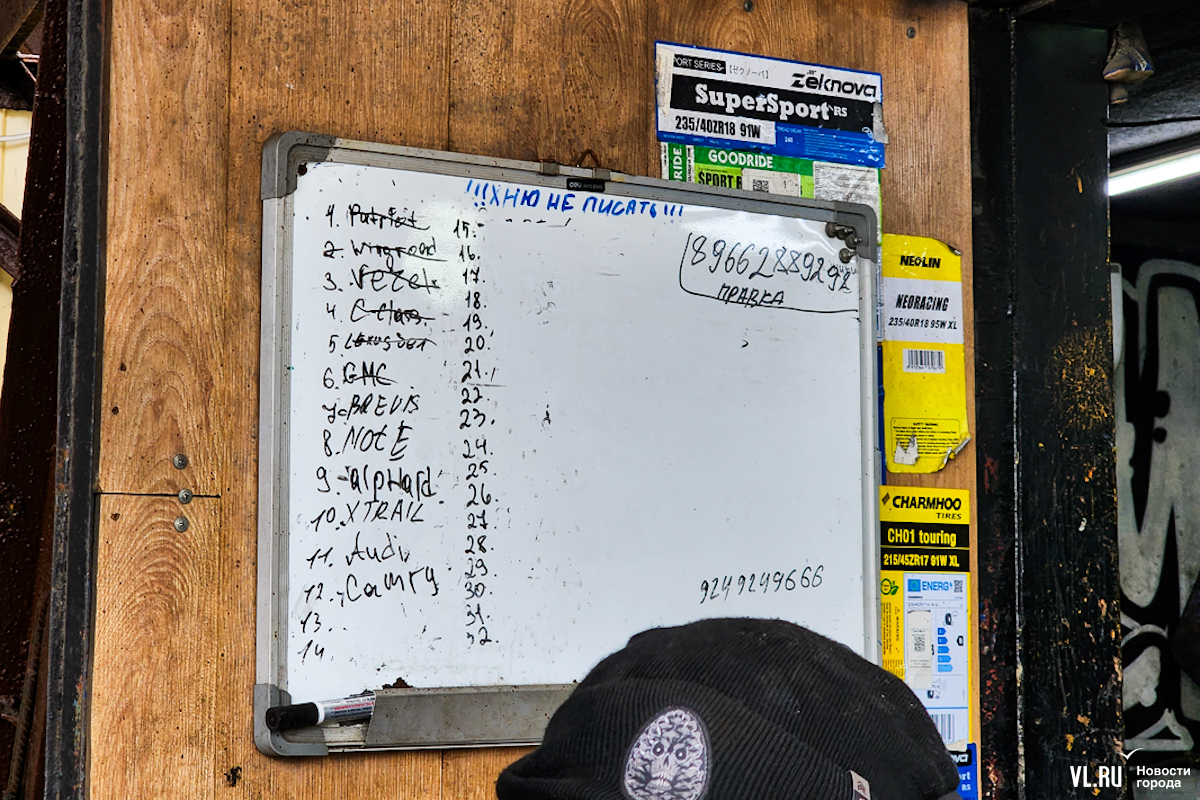 PORT SERIES
【ゼクノーバ】
Zeknova
SuperSport RS
235/40ZR18 91W
RIDE
GOODRIDE
SPORT R
!!!ХНЮ НЕ ПИСАТЬ!!!
1. Patriot
2. Wingroad
3. VEZEL
4. C-class
6. GMC
7. BREVIS
8. NOTE
9. alphard
10. XTRAIL
11. Audi
12. Camry
13.
14
15.
16.
17.
18.
19.
20.
21.
22.
23.
24.
25
26.
27.
28.
29.
30.
31.
32.
89662889292
ПРАВКА
9249249666
NEOLIN
NEORACING
235/40R18 95W XL
CHARMHOO
TIRES
CH01 touring
215/45ZR17 91W XL
ENERG
VL.RU
Новости
города